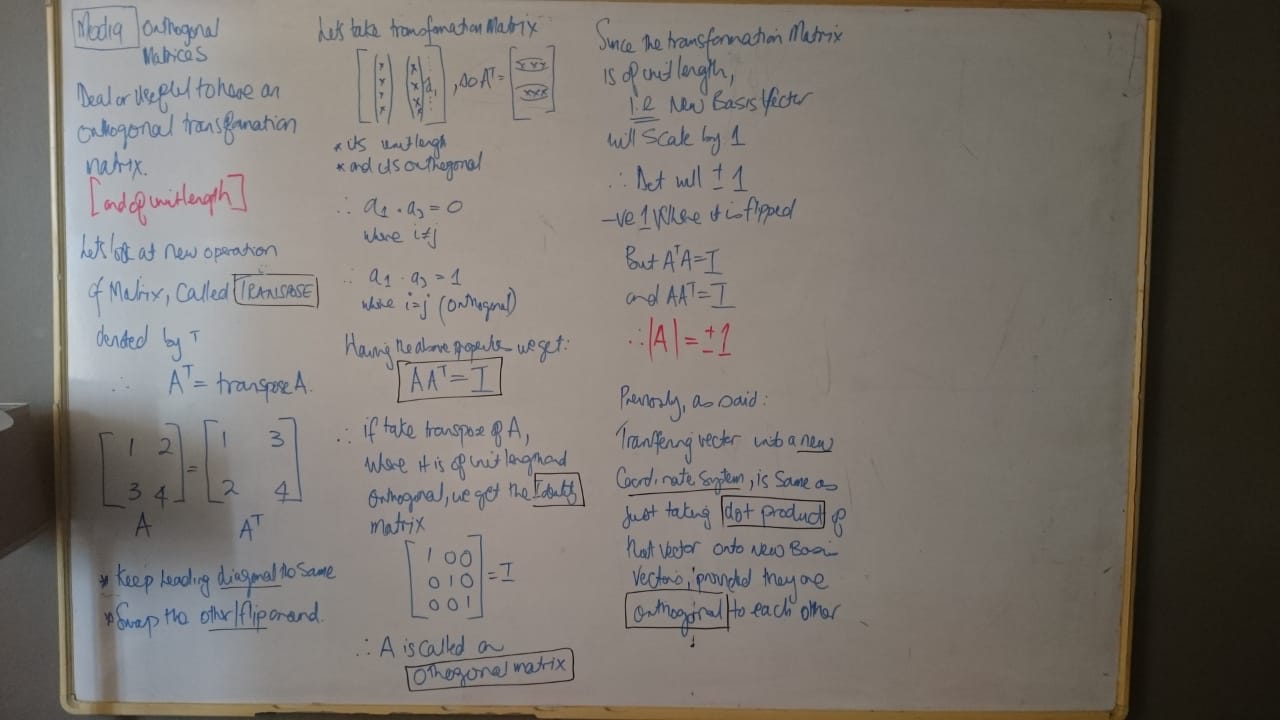 Orthogonal
Matrices
Ideal or Useful to have an
orthogonal transformation
matrix.
[and of unit length]
Lets look at new operation
of Matrix, Called TRANSPOSE
denoted by T
∴ A^T = transpose A.
[1 2
3 4] = [1 3
2 4]
A A^T
* Keep leading diagonal the same
* Swap the other/flip around.
Lets take transformation Matrix
[x x
x x
x x a₁
x x], so A^T = [xxx
xxx]
* its unit length
* and its orthogonal
∴ a₁ . a₂ = 0
where i≠j
∴ a₁ . a₂ = 1
where i=j (orthogonal)
Having the above properties we get:
AA^T = I
∴ if take transpose of A,
Where it is of unit length and
orthogonal, we get the Identity
matrix
[1 0 0
0 1 0
0 0 1] = I
∴ A is called an
Othogonal matrix
Since the transformation Matrix
is of unit length,
i.e New Basis Vector
will Scale by 1
∴ Det will ± 1
-ve 1 Where it is flipped
But A^TA = I
and AA^T = I
∴ |A| = ±1
Previously, as said:
Transferring vector into a new
Coordinate System, is same as
just taking dot product of
that vector onto new Basis
Vectors, provided they are
orthogonal to each other